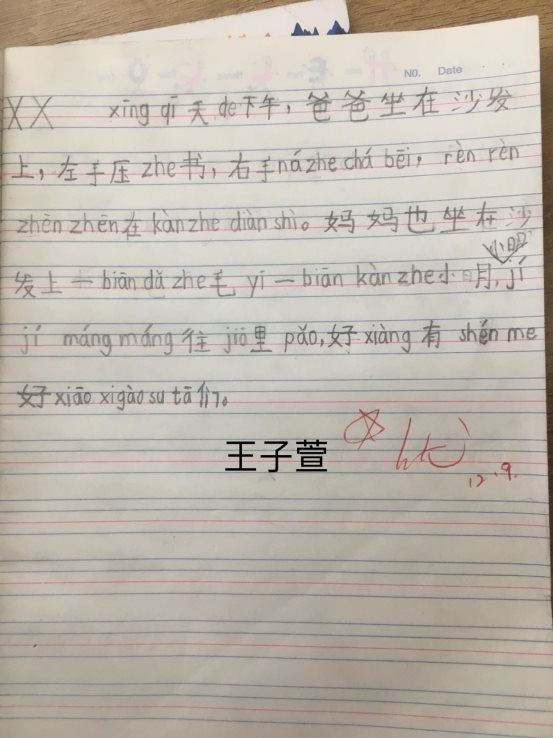 NO. Date
XX xīng qī 天 de 下午，爸爸坐在沙发
上，左手压 zhe 书，右手 ná zhe chá bēi，rèn rèn
zhēn zhēn 在 kàn zhe diàn shì。妈妈也坐在沙
小明
发上一 biān dǎ zhe 毛 yī 一 biān kàn zhe 小明，jí
jí máng máng 往 jiā 里 pǎo，好 xiàng 有 shén me
好 xiāo xi gào su tā 们。
王子萱
优
12.9.